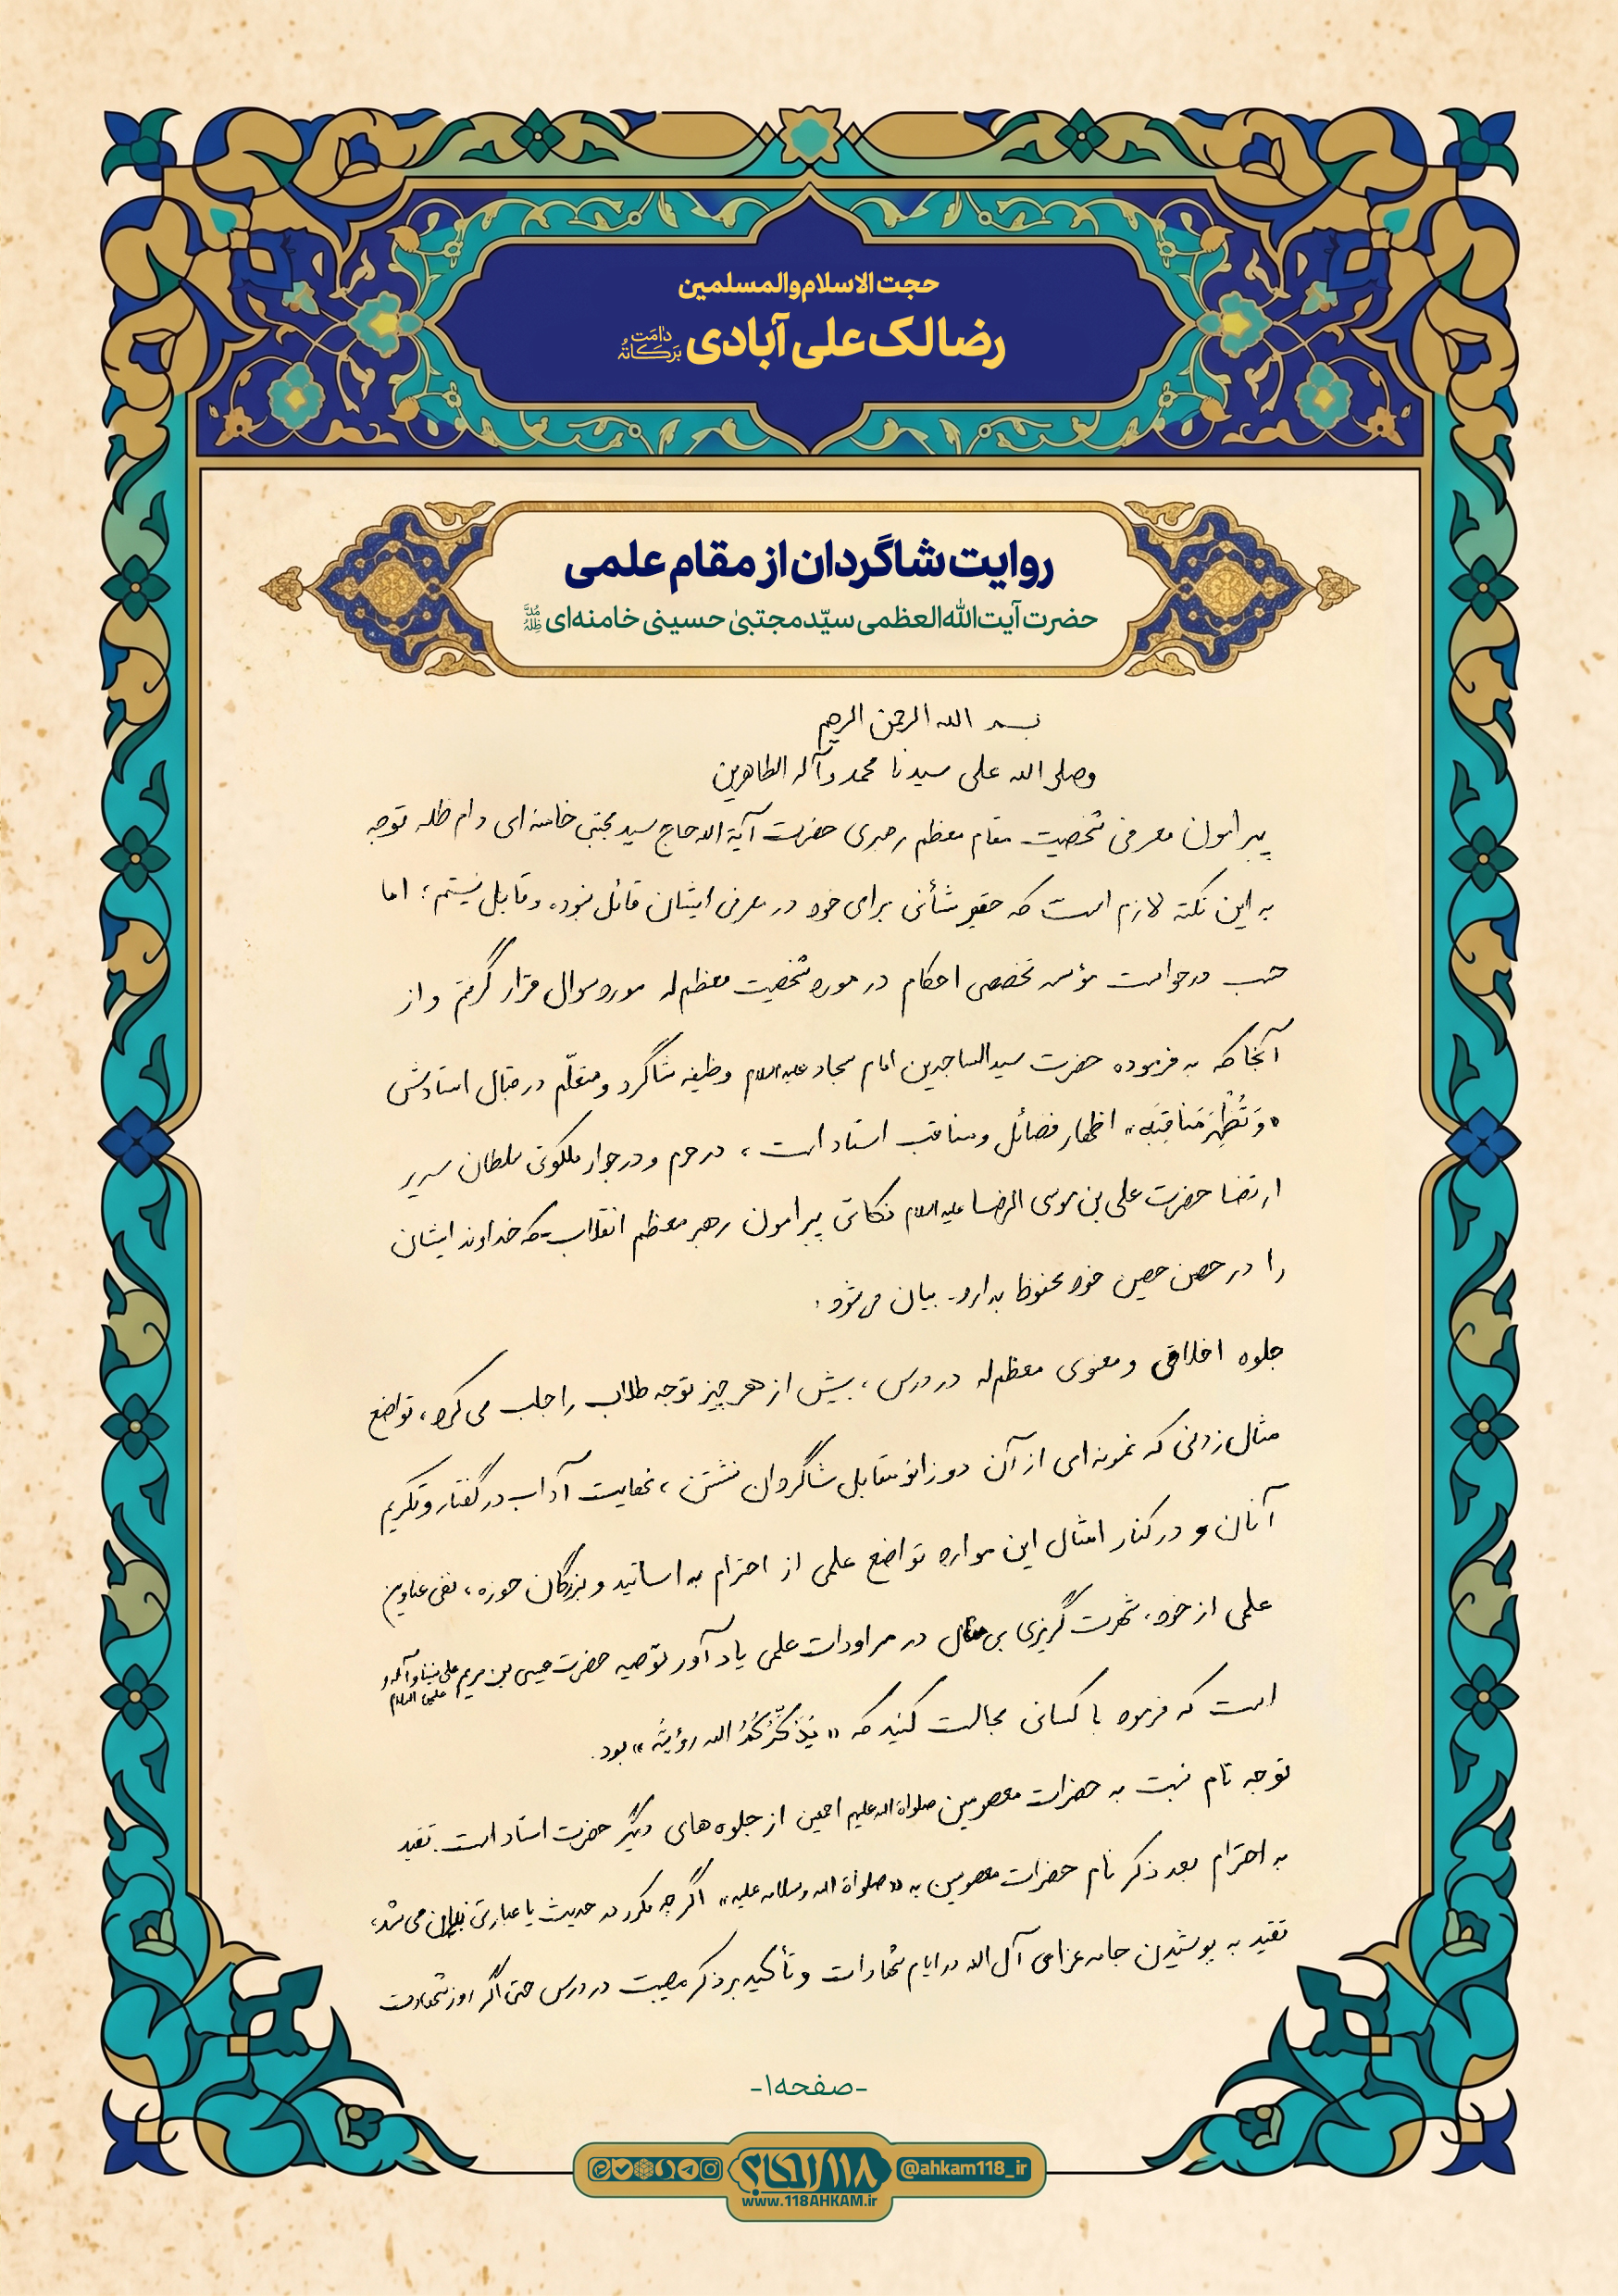 حجت الاسلام والمسلمین
رضا لک علی آبادی دامَت بَرَکاتُهُ
روایت شاگردان از مقام علمی
حضرت آیت‌الله‌العظمی سیّد مجتبیٰ حسینی خامنه‌ای مُدَّ ظِلُّهُ
بسم الله الرحمن الرحیم
وصلی الله علی سیدنا محمد وآله الطاهرین
پیرامون معرفی شخصیت مقام معظم رهبری حضرت آیة الله حاج سید مجتبی خامنه‌ای دام ظله توجه
به این نکته لازم است که حقیر شأنی برای خود در معرفی ایشان قائل نبوده و قابل نیستم؛ اما
حسب درخواست مؤسسه تخصصی احکام در مورد شخصیت معظم‌له مورد سوال قرار گرفتم و از
آنجا که به فرموده حضرت سیدالساجدین امام سجاد علیه‌السلام وظیفه شاگرد و متعلّم در قبال استادش
«وَ تُظْهِرَ مَناقِبَه» اظهار فضائل و مناقب استاد است، در حرم و در جوار ملکوتی سلطان سریر
ارتضا حضرت علی بن موسی الرضا علیه‌السلام نکاتی پیرامون رهبر معظم انقلاب - که خداوند ایشان
را در حصن حصین خود محفوظ بدارد - بیان می‌شود.
جلوه اخلاقی و معنوی معظم‌له در درس، بیش از هر چیز توجه طلاب را جلب می‌کرد، تواضع
مثال زدنی که نمونه‌ای از آن دو زانو مقابل شاگردان نشستن، نهایت آداب در گفتار و تکریم
آنان و در کنار امثال این موارد تواضع علمی از احترام به اساتید و بزرگان حوزه، نفی عناوین
علمی از خود، شهرت گریزی بی‌مثال در مراودات علمی یادآور توصیه حضرت عیسی بن مریم علی نبینا و آله و علیه السلام
است که فرمود با کسانی مجالست کنید که «یُذَکِّرُکُمُ الله رؤیتُه» بود.
توجه تام نسبت به حضرات معصومین صلوات الله علیهم اجمعین از جلوه‌های دیگر حضرت استاد است. تقید
به احترام بعد ذکر نام حضرات معصومین به «صلواة الله وسلامه علیه» اگر چه مکرر در حدیث یا عبارتی نمایان می‌شد،
تقید به پوشیدن جامه عزای آل الله در ایام شهادات و تأکید بر ذکر مصیبت در درس حتی اگر روز شهادت
-صفحه۱-
۱۱۸ احکام
@ahkam118_ir
www.118AHKAM.ir